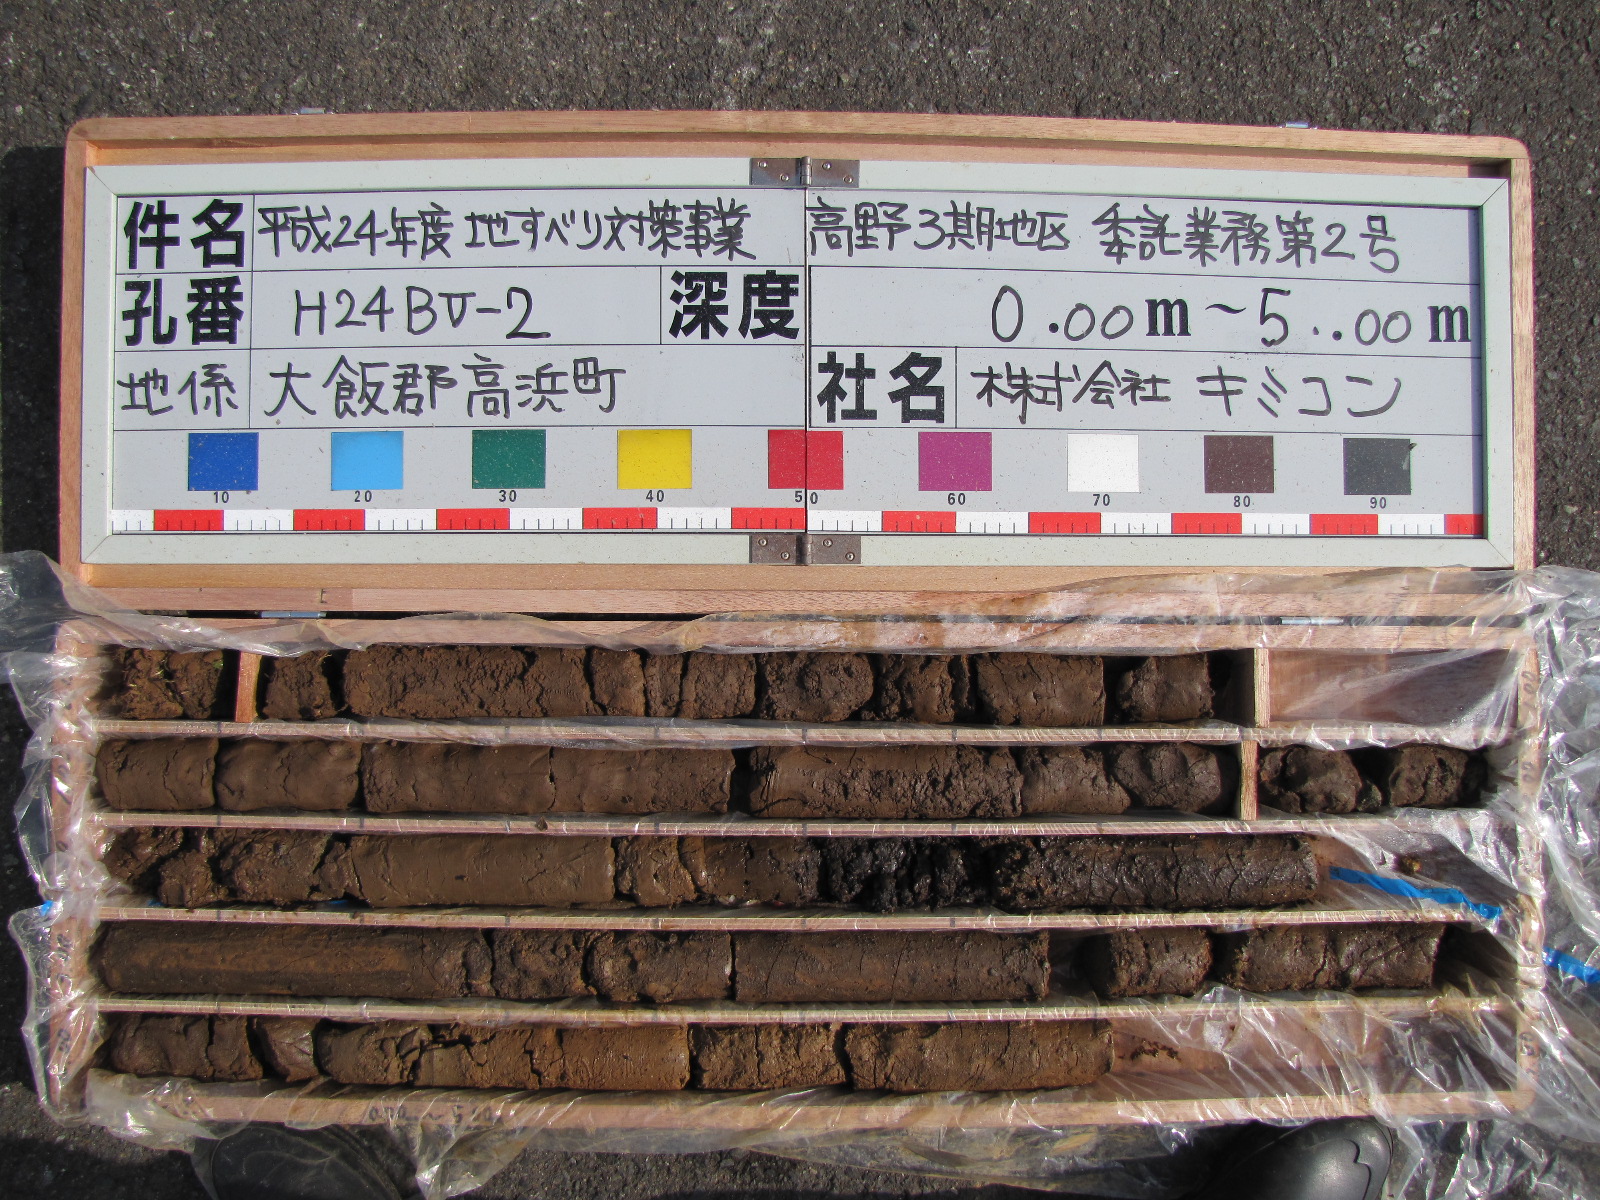 件名 平成24年度 地すべり対策事業 高野3期地区 委託業務第2号
孔番 H24BV-2 深度 0.00m~5..00m
地係 大飯郡高浜町 社名 株式会社 キミコン
10 20 30 40 50 60 70 80 90